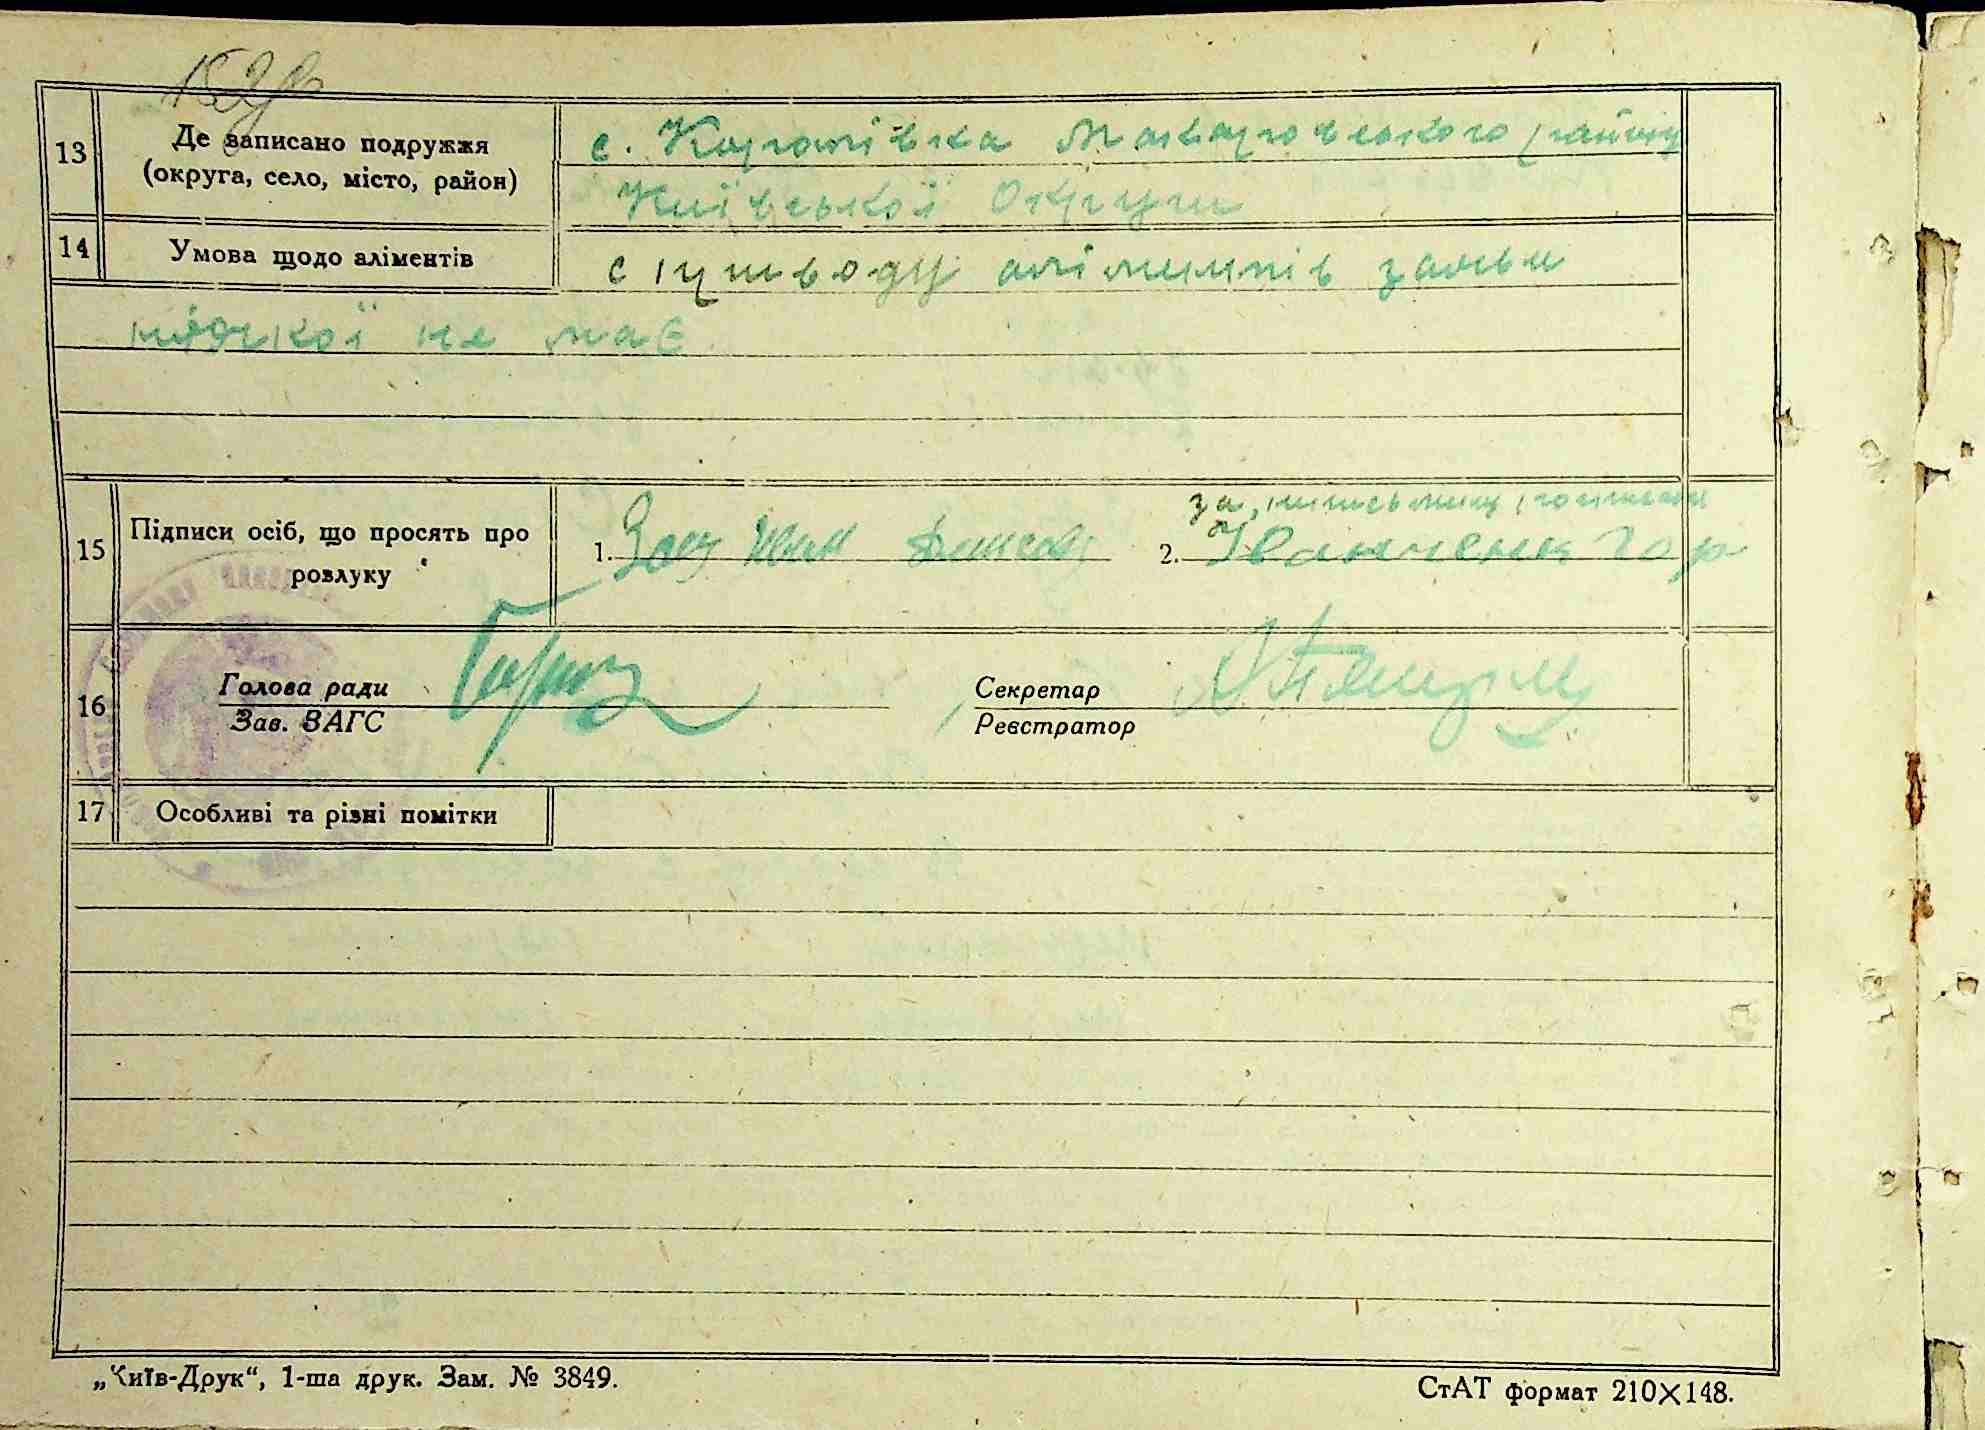 13
Де записано подружжя
(округа, село, місто, район)
с. Королівка Макаровського району
Київської Округи
14
Умова щодо аліментів
с приводу аліментів заяви
ніякої не має
15
Підписи осіб, що просять про
розлуку
1. Заєц Иван
за неписьменну
2. Іванченк
16
Голова ради
Зав. ВАГС
Секретар
Реєстратор
17
Особливі та різні помітки
„Київ-Друк“, 1-ша друк. Зам. № 3849.
СтАТ формат 210×148.